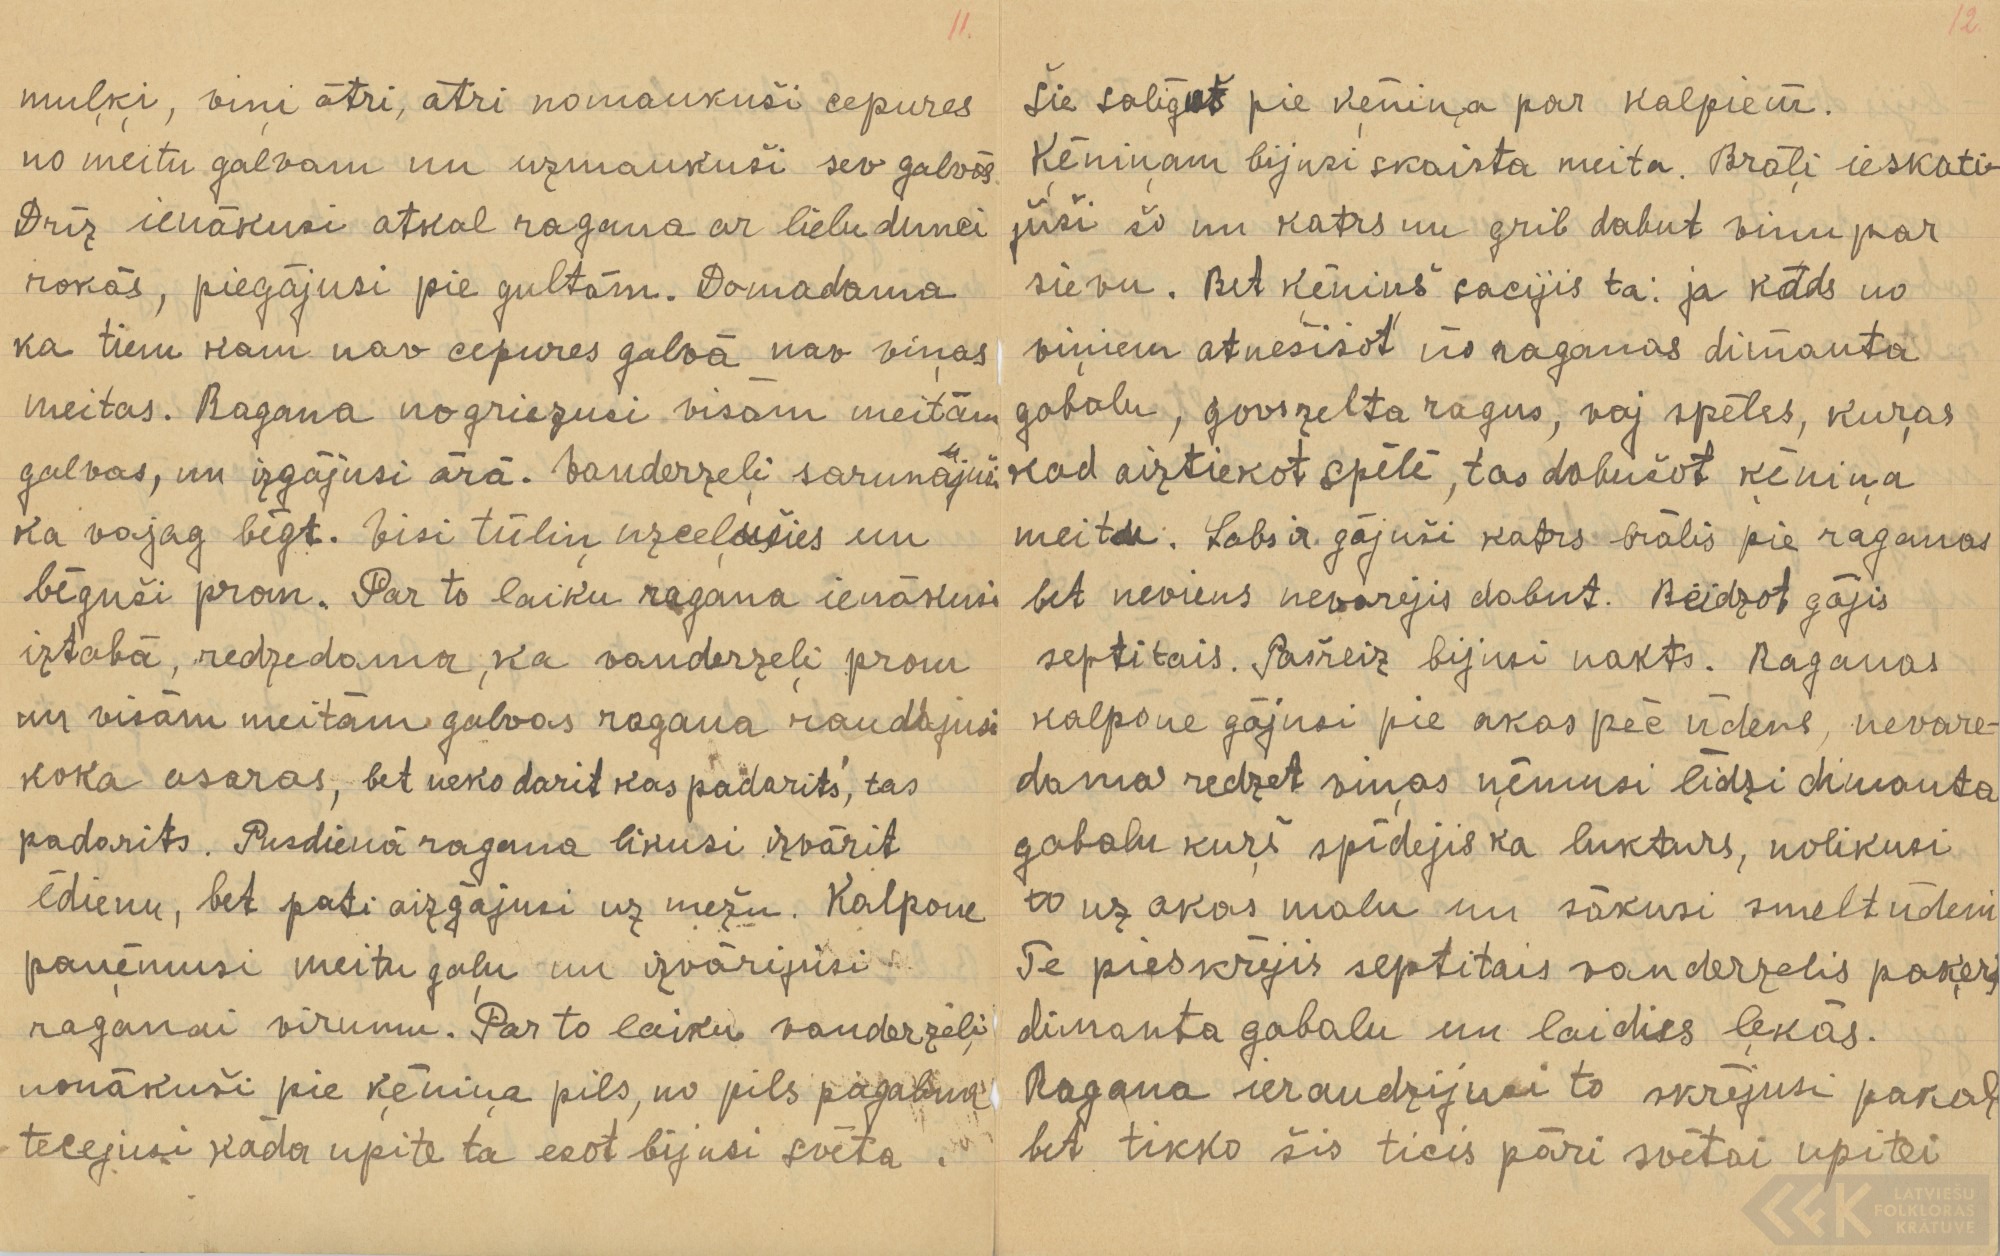 11.
muļķi, viņi ātri, ātri nomaukuši cepures
no meitu galvam un uzmaukuši sev galvās
Drīz ienākusi atkal ragana ar lielu dunci
rokās, piegājusi pie gultām. Domadama
ka tiem kam nav cepures galvā nav viņas
meitas. Ragana nogriezusi visām meitām
galvas, un izgājusi ārā. Vanderzeļi sarunājuši
ka vajag bēgt. Visi tūliņ uzceļušies un
bēguši prom. Par to laiku ragana ienākusi
iztabā, redzedama, ka vanderzeļi prom
un visām meitām galvas ragana raudājusi
koka asaras, bet neko darit kas padarits, tas
padarits. Pusdienā ragana likusi izvārit
ēdienu, bet pati aizgājusi uz mežu. Kalpone
paņēmusi meitu gaļu un izvārijusi
raganai virumu. Par to laiku vanderzēļi
nonākuši pie ķēniņa pils, no pils pagalma
tecejusi kāda upite ta esot bijusi svēta.
12.
Šie salīguš pie ķēniņa par kalpiem.
Ķēniņam bijusi skaista meita. Brāļi ieskati-
jūši šo un katrs un grib dabut vinu par
sievu. Bet ķēniņš sacijis tā: ja kāds no
viņiem atnesīšot no raganas dimanta
gabalu, govs zelta ragus, vaj spēles, kuŗas
kad aiztiekot spēlē, tas dabušot ķēniņa
meitu. Labs ir gājuši katrs brālis pie raganas
bet neviens nevarejis dabut. Beidzot gājis
septitais. Pašreiz bijusi nakts. Raganas
kalpone gājusi pie akas pēc ūdens, nevare-
dama redzet viņas ņēmusi līdzi dimanta
gabalu kuŗš spīdejis ka lukturs, nolikusi
to uz akas malu un sākusi smelt ūdeni
Te pieskrējis septitais vanderzelis paķeris
dimanta gabalu un laidies ļekās.
Ragana ieraudzijusi to skrējusi pakaļ
bet tikko šis ticis pāri svētai upitei
LATVIEŠU
FOLKLORAS
KRĀTUVE